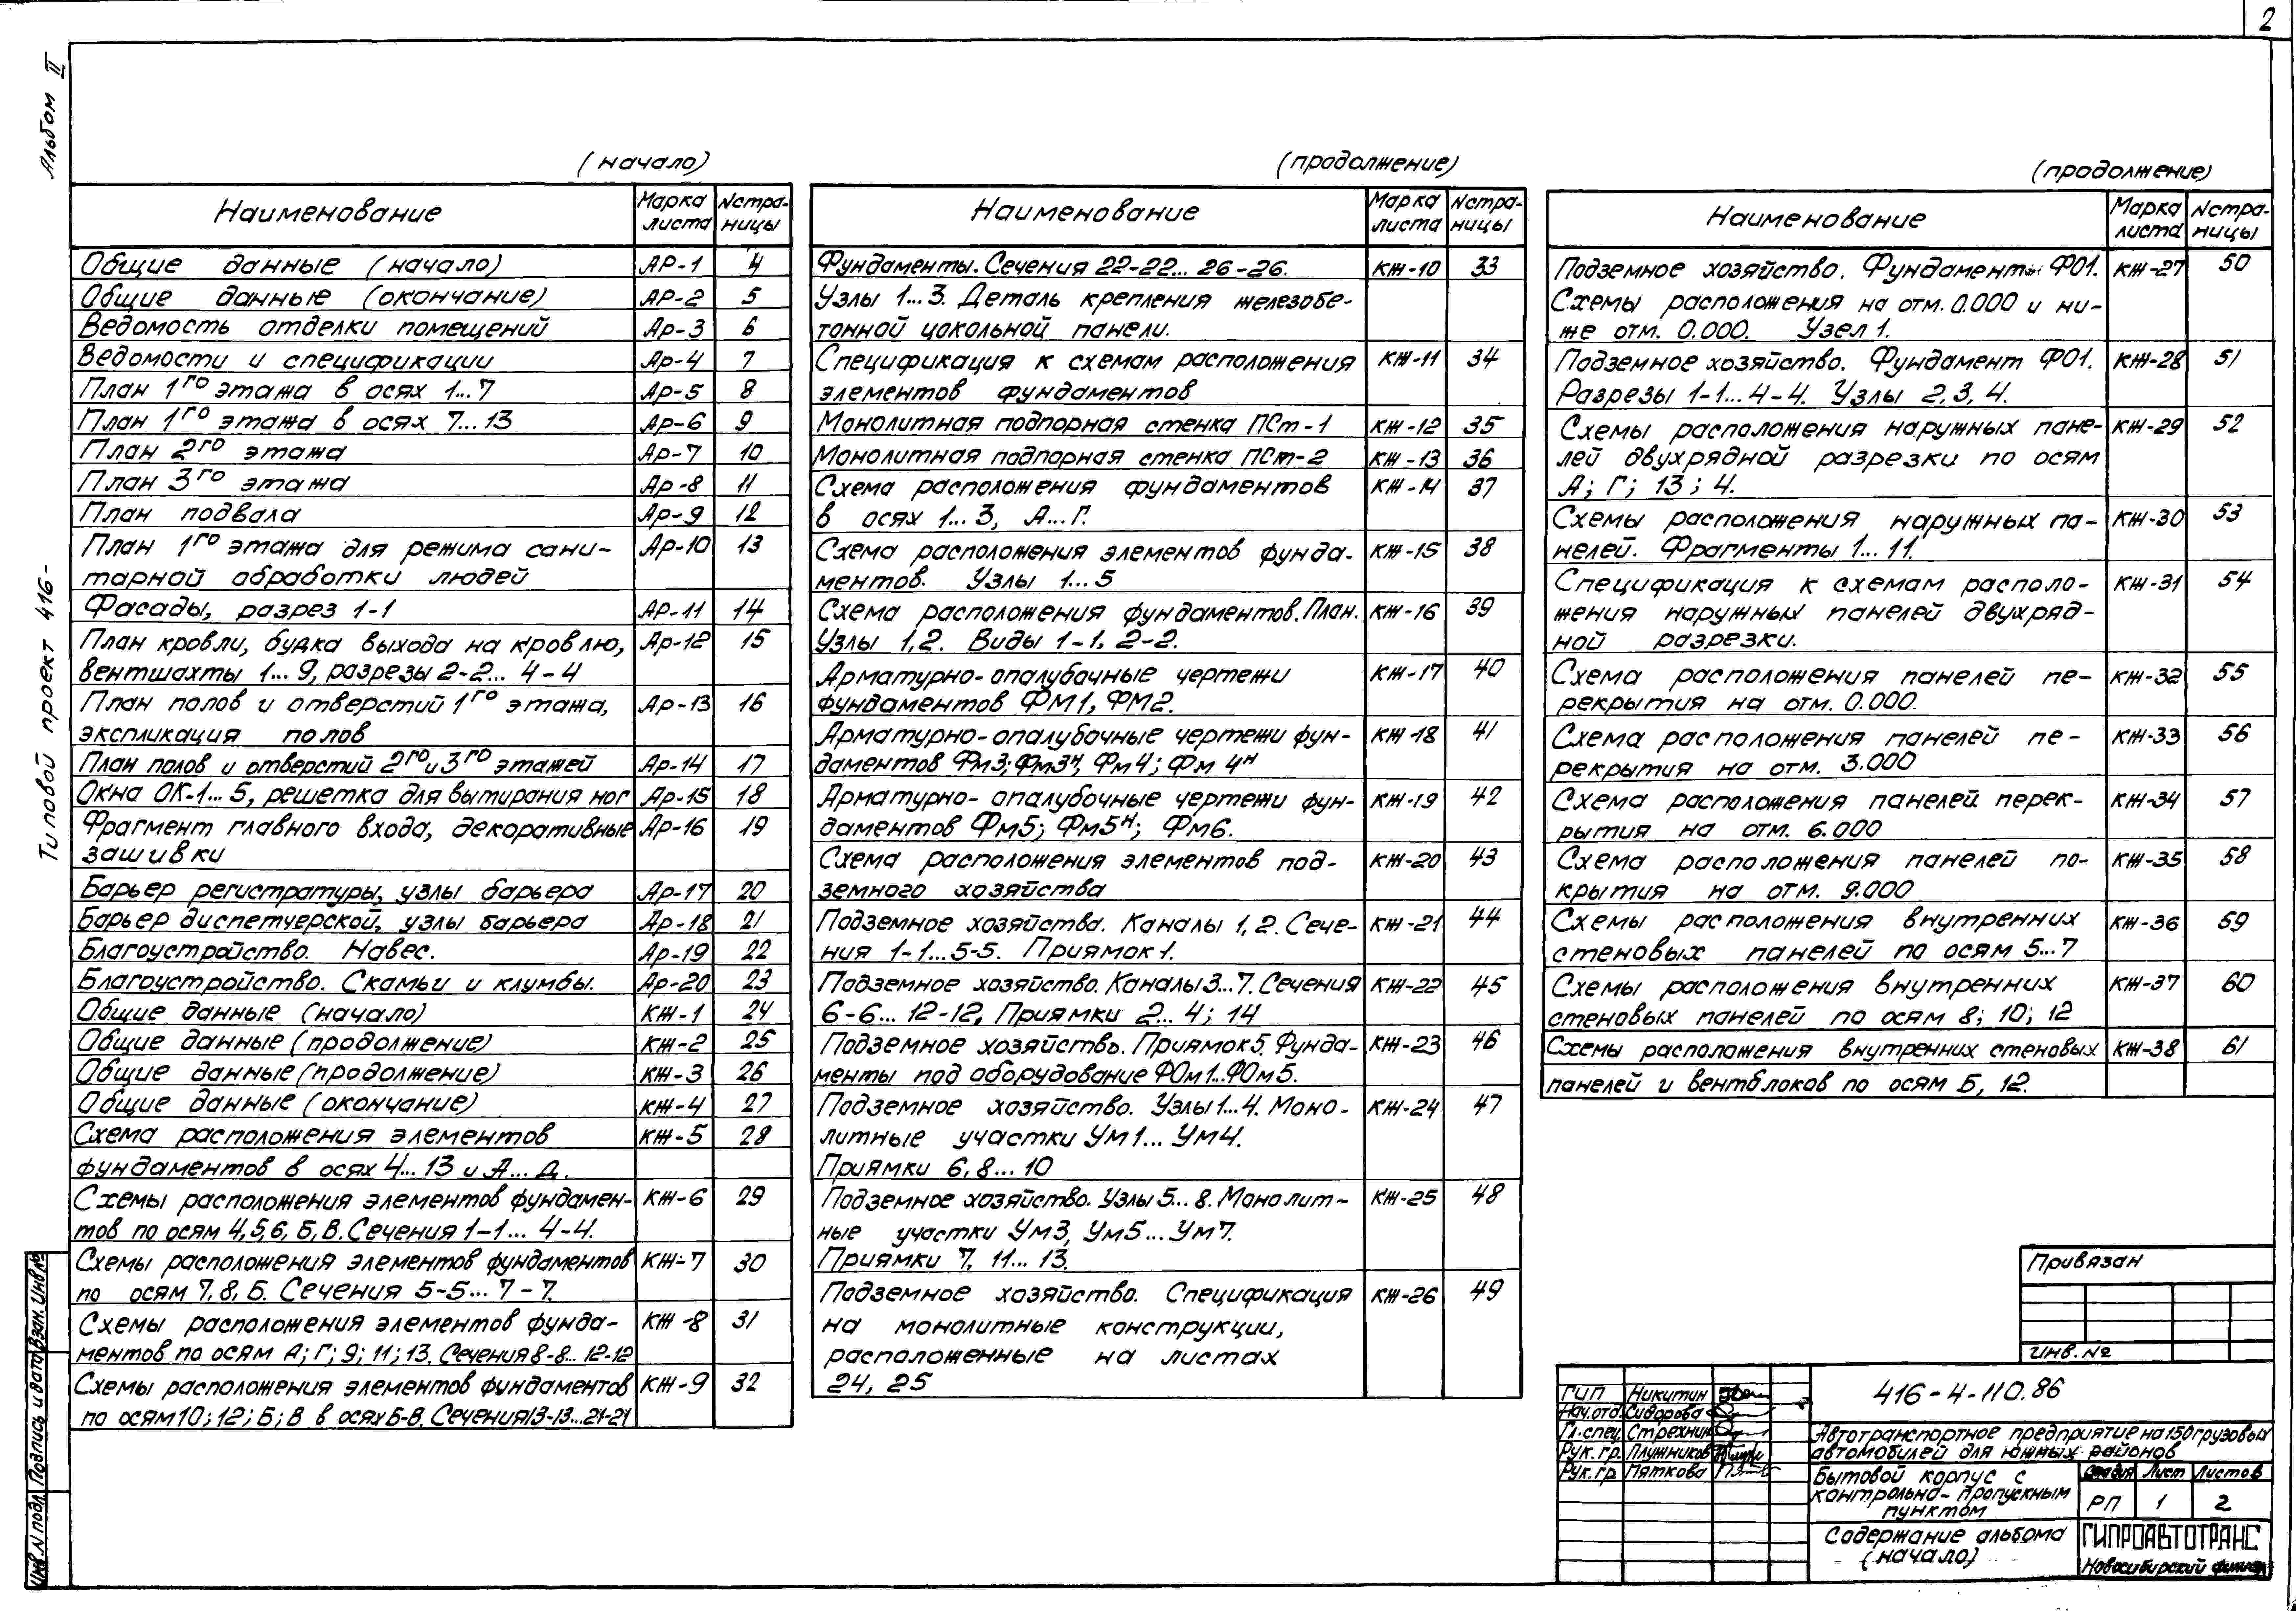 2
Альбом II
Типовой проект 416-
(начало)
Наименование Марка листа Nстра-ницы
Общие данные (начало) АР-1 4
Общие данные (окончание) АР-2 5
Ведомость отделки помещений Ар-3 6
Ведомости и спецификации Ар-4 7
План 1го этажа в осях 1...7 Ар-5 8
План 1го этажа в осях 7...13 Ар-6 9
План 2го этажа Ар-7 10
План 3го этажа Ар-8 11
План подвала Ар-9 12
План 1го этажа для режима сани- Ар-10 13
тарной обработки людей
Фасады, разрез 1-1 Ар-11 14
План кровли, будка выхода на кровлю, Ар-12 15
вентшахты 1...9, разрезы 2-2... 4-4
План полов и отверстий 1го этажа, Ар-13 16
экспликация полов
План полов и отверстий 2го и 3го этажей Ар-14 17
Окна ОК-1...5, решетка для вытирания ног Ар-15 18
Фрагмент главного входа, декоративные Ар-16 19
зашивки
Барьер регистратуры, узлы барьера Ар-17 20
Барьер диспетчерской, узлы барьера Ар-18 21
Благоустройство. Навес. Ар-19 22
Благоустройство. Скамьи и клумбы. Ар-20 23
Общие данные (начало) КЖ-1 24
Общие данные (продолжение) КЖ-2 25
Общие данные (продолжение) КЖ-3 26
Общие данные (окончание) КЖ-4 27
Схема расположения элементов КЖ-5 28
фундаментов в осях 4...13 и А...Д.
Схемы расположения элементов фундамен- КЖ-6 29
тов по осям 4,5,6, Б,В. Сечения 1-1... 4-4.
Схемы расположения элементов фундаментов КЖ-7 30
по осям 7,8, Б. Сечения 5-5... 7-7.
Схемы расположения элементов фунда- КЖ-8 31
ментов по осям А; Г; 9; 11; 13. Сечения 8-8... 12-12
Схемы расположения элементов фундаментов КЖ-9 32
по осям 10; 12; Б; В в осях Б-В. Сечения 13-13...21-21
(продолжение)
Наименование Марка листа Nстра-ницы
Фундаменты. Сечения 22-22... 26-26. КЖ-10 33
Узлы 1...3. Деталь крепления железобе-
тонной цокольной панели.
Спецификация к схемам расположения КЖ-11 34
элементов фундаментов
Монолитная подпорная стенка ПСт-1 КЖ-12 35
Монолитная подпорная стенка ПСт-2 КЖ-13 36
Схема расположения фундаментов КЖ-14 37
в осях 1...3, А...Г.
Схема расположения элементов фунда- КЖ-15 38
ментов. Узлы 1...5
Схема расположения фундаментов. План. КЖ-16 39
Узлы 1,2. Виды 1-1, 2-2.
Арматурно-опалубочные чертежи КЖ-17 40
фундаментов ФМ1, ФМ2.
Арматурно-опалубочные чертежи фун- КЖ-18 41
даментов Фм3; Фм3н, Фм4; Фм4н
Арматурно-опалубочные чертежи фун- КЖ-19 42
даментов Фм5; Фм5н; Фм6.
Схема расположения элементов под- КЖ-20 43
земного хозяйства
Подземное хозяйства. Каналы 1,2. Сече- КЖ-21 44
ния 1-1...5-5. Приямок 1.
Подземное хозяйство. Каналы 3...7. Сечения КЖ-22 45
6-6... 12-12, Приямки 2... 4; 14
Подземное хозяйство. Приямок 5. Фунда- КЖ-23 46
менты под оборудование ФОм1...ФОм5.
Подземное хозяйство. Узлы 1...4. Моно- КЖ-24 47
литные участки Ум1... Ум4.
Приямки 6, 8...10
Подземное хозяйство. Узлы 5...8. Монолит- КЖ-25 48
ные участки Ум3, Ум5... Ум7.
Приямки 7, 11... 13.
Подземное хозяйство. Спецификация КЖ-26 49
на монолитные конструкции,
расположенные на листах
24, 25
(продолжение)
Наименование Марка листа Nстра-ницы
Подземное хозяйство. Фундаменты ФО1. КЖ-27 50
Схемы расположения на отм. 0.000 и ни-
же отм. 0.000. Узел 1.
Подземное хозяйство. Фундамент ФО1. КЖ-28 51
Разрезы 1-1...4-4. Узлы 2,3,4.
Схемы расположения наружных пане- КЖ-29 52
лей двухрядной разрезки по осям
А; Г; 13; 4.
Схемы расположения наружных па- КЖ-30 53
нелей. Фрагменты 1...11.
Спецификация к схемам располо- КЖ-31 54
жения наружных панелей двухряд-
ной разрезки.
Схема расположения панелей пе- КЖ-32 55
рекрытия на отм. 0.000.
Схема расположения панелей пе- КЖ-33 56
рекрытия на отм. 3.000
Схема расположения панелей перек- КЖ-34 57
рытия на отм. 6.000
Схема расположения панелей по- КЖ-35 58
крытия на отм. 9.000
Схемы расположения внутренних КЖ-36 59
стеновых панелей по осям 5...7
Схемы расположения внутренних КЖ-37 60
стеновых панелей по осям 8; 10; 12
Схемы расположения внутренних стеновых КЖ-38 61
панелей и вентблоков по осям Б, 12.
Привязан
Инв. №
ГИП Никитин
Нач.отд. Сидорова
Гл.спец. Стрехнин
Рук.гр. Плужников
Рук.гр. Пяткова
416-4-110.86
Автотранспортное предприятие на 150 грузовых
автомобилей для южных районов
Бытовой корпус с
контрольно-пропускным
пунктом
Стадия Лист Листов
РП 1 2
Содержание альбома
(начало)
ГИПРОАВТОТРАНС
Новосибирский филиал
Инв.N подл. Подпись и дата Взам. Инв №